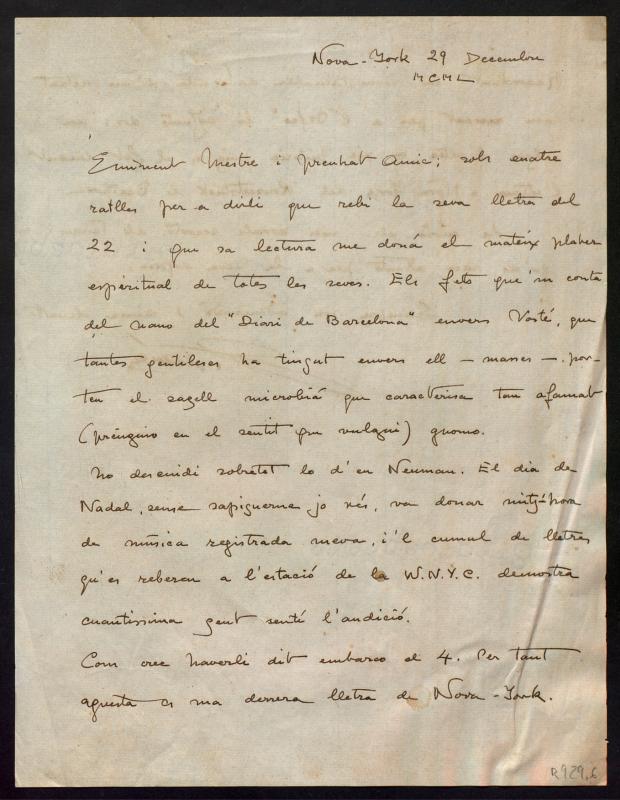 Nova-York 29 Decembre
MCML
Eminent Mestre i preuhat amic; sols cuatre
ratlles per a dirli que rebi la seva lletra del
22 i que sa lectura me doná el mateix plaher
espiritual de totes les seves. Els fets que'm conta
del nano del "Diari de Barcelona" envers Vosté, que
tantes gentileses ha tingut envers ell — masses — por-
ten el sagell microbiá que caracterisa tan afamat
(prenguino en el sentit que vulgui) gnomo.
No descuidi sobretot lo d'en Neuman. El dia de
Nadal, sense sapiguerne jo res, va donar mitj-hora
de música registrada meva, i'l cumul de lletres
qu'es reberen a l'estació de la W.N.Y.C. demostra
cuantissima gent sentí l'audició.
Com crec haverli dit embarco el 4. Per tant
aquesta es ma derrera lletra de Nova-York.
R929,6